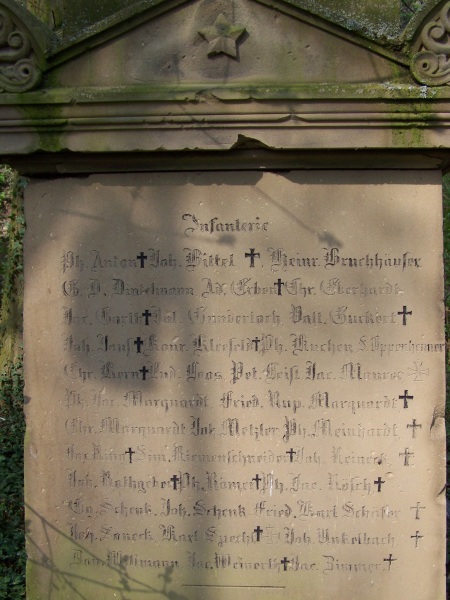 Infanterie
Ph. Anton † Joh. Bittel † Heinr. Bruchhäuser
Ad. Erbes † Chr. Eberhardt
Jac. Val. Gunderloch Vall. Guckert †
Joh. † Konr. Kleefeld † Ph. Kuchen F. Oppenheimer
Chr. Korn † Lud. Loos Pet. Leist Jac. Maurer †
Jac. Marquardt Fried. Rup. Marquardt †
Chr. Marquardt Joh. Metzler Ph. Meinhardt †
Jac. † Sim. Riemenschneider † Joh. Reineck †
Joh. Rathgeber † Ph. Römer † Ph. Jac. Rösch †
Gg. Schenk Joh. Schenk Fried. Karl Schäfer †
Karl Specht † Joh. Unkelbach †
Jac. Weinerth † Jac. Zimmer †